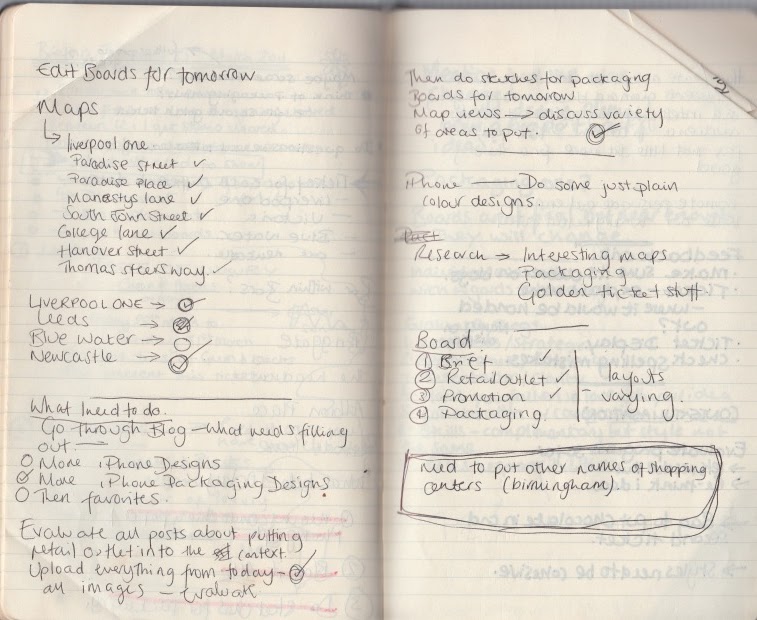 Edit Boards for tomorrow
Maps
↳ liverpool one.
Paradise street ✓
Paradise Place ✓
Manestys lane ✓
South John Street ✓
College lane ✓
Hanover street ✓
Thomas steers way ✓
LIVERPOOL ONE →
Leeds →
Blue water →
Newcastle →
What I need to do.
Go through Blog - what needs filling
out.
More iPhone Designs
More iPhone Packaging Designs
Then favorites.
Evaluate all posts about putting
retail outlet into the context.
Upload everything from today -
all images - Evaluate
Then do sketches for packaging
Boards for tomorrow
Map views → discuss variety
of areas to put.
iPhone — Do some just plain
colour designs.
Research → Interesting maps
Packaging
Golden ticket stuff
Board
① Brief ✓
② Retail outlet ✓
③ Promotion ✓
④ Packaging
layouts
- varying.
need to put other names of shopping
centers (birmingham).